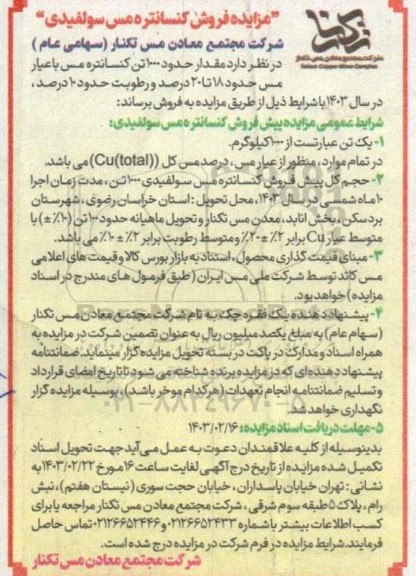 "مزایده فروش کنسانتره مس سولفیدی"
شرکت مجتمع معادن مس تکنار (سهامی عام)
در نظر دارد مقدار حدود ۱۰۰۰ تن کنسانتره مس با عیار
مس حدود ۱۸ تا ۲۰ درصد و رطوبت حدود ۱۰ درصد،
در سال ۱۴۰۳ با شرایط ذیل از طریق مزایده به فروش برساند:
شرایط عمومی مزایده پیش فروش کنسانتره مس سولفیدی:
۱- یک تن عبارتست از ۱۰۰۰ کیلوگرم.
در تمام موارد، منظور از عیار مس، درصد مس کل (Cu(total)) می باشد.
۲- حجم کل پیش فروش کنسانتره مس سولفیدی ۱۰۰۰ تن، مدت زمان اجرا
۱۰ ماه شمسی در سال ۱۴۰۳، محل تحویل: استان خراسان رضوی، شهرستان
بردسکن، بخش انابد، معدن مس تکنار و تحویل ماهیانه حدود ۱۰۰ تن (۱۰٪ ±) با
متوسط عیار Cu برابر ۲٪ ± ۲۰٪ و متوسط رطوبت برابر ۲٪ ± ۱۰٪ می باشد.
۳- مبنای قیمت گذاری محصول، استناد به بازار بورس کالا و قیمت های اعلامی
مس کاتد توسط شرکت ملی مس ایران (طبق فرمول های مندرج در اسناد
مزایده) خواهد بود.
۴- پیشنهاد دهنده یک فقره چک به نام شرکت مجتمع معادن مس تکنار
(سهام عام) به مبلغ یکصد میلیون ریال به عنوان تضمین شرکت در مزایده به
همراه اسناد و مدارک در پاکت در بسته تحویل مزایده گزار مینماید. ضمانتنامه
پیشنهاد دهنده ای که در مزایده برنده شناخته می شود تا تاریخ امضای قرارداد
و تسلیم ضمانتنامه انجام تعهدات (هر کدام موخر باشد)، بوسیله مزایده گزار
نگهداری خواهد شد.
۵- مهلت دریافت اسناد مزایده: ۱۴۰۳/۰۲/۱۶
بدینوسیله از کلیه علاقمندان دعوت به عمل می آید جهت تحویل اسناد
تکمیل شده مزایده از تاریخ درج آگهی لغایت ساعت ۱۶ مورخ ۱۴۰۳/۰۲/۲۲ به
نشانی: تهران خیابان پاسداران، خیابان حجت سوری (نیستان هفتم)، نبش
رام، پلاک ۵ طبقه سوم شرقی، شرکت مجتمع معادن مس تکنار مراجعه یا برای
کسب اطلاعات بیشتر با شماره ۰۲۱۲۶۶۵۲۴۳۳ و ۰۲۱۲۶۶۵۲۴۴۶ تماس حاصل
فرمایند. شرایط مزایده در فرم شرکت در مزایده درج شده است.
شرکت مجتمع معادن مس تکنار